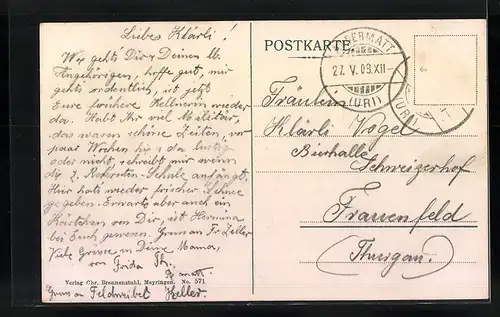 Liebes Klärli!
Wie geht's Dir & Deinen lb.
Angehörigen, hoffe gut, mir
gehts ordentlich, ist jetzt
Eure frühere Kellnerin wieder
da. Habt Ihr viel Militär,
das waren schöne Zeiten, vor
paar Wochen
oder nicht, schreibt mir wenn
die 2. Rekruten-Schule anfängt.
Hier hats wieder frischer Schnee
gegeben. Erwarte aber auch ein
Kärtchen von Dir, ist Hermina
bei Euch gewesen. Gruss an Fr. Zeller
Viele Grüsse an Deine Mama,
von Frida Th.
Gruss an Feldweibel Keller.
Verlag Chr. Brennenstuhl, Meyringen. No. 571
POSTKARTE
ANDERMATT
27. V. 09. XII-
(URI)
(URI)
Fräulein
Klärli Vogel
Bierhalle
Schweizerhof
Frauenfeld
Thurgau.